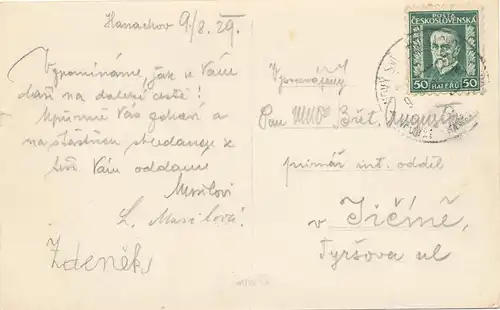 Harrachov 9/8. 29.
Vzpomínáme, jak se Vám
daří na další cestě!
Upřímně Vás zdraví a
na šťastnou shledanou se
těší Vám oddaní
Musilovi
L. Musilová.
Zdeněk
POŠTA
ČESKOSLOVENSKÁ
50 HALÉŘŮ 50
Vzácný
Pan MUDr Břet. Augustin
primář int. odděl
v Jičíně
Tyršova ul